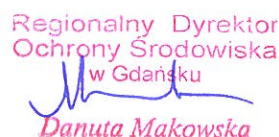 Regionalny Dyrektor
Ochrony Środowiska
w Gdańsku
Danuta Makowska